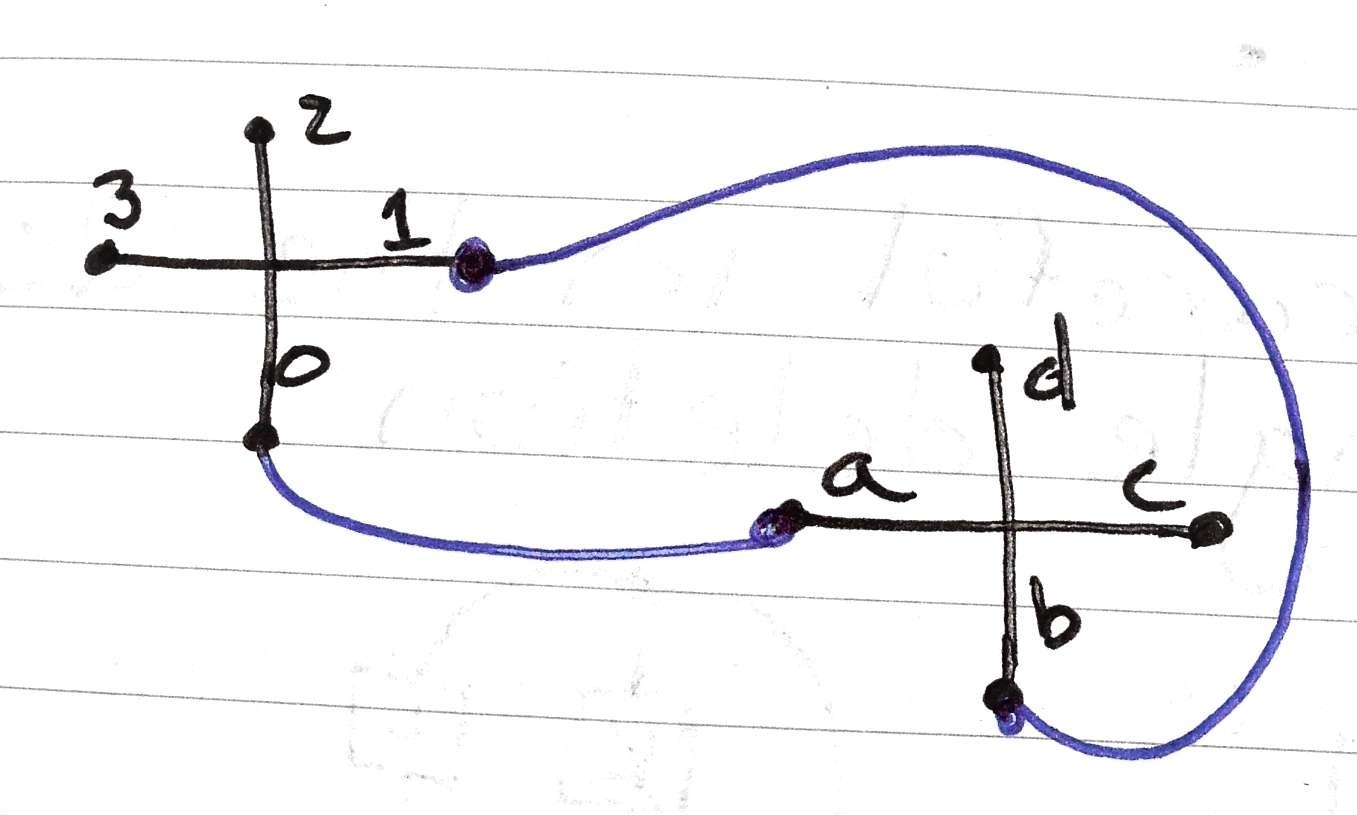 2
3
1
0
d
a
c
b